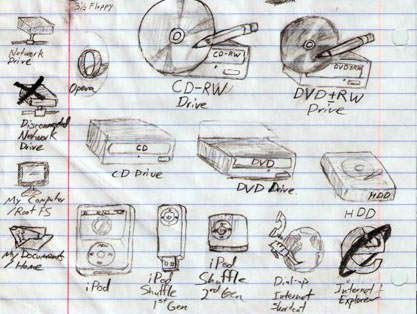 3½ Floppy
Network
Drive
Opera
CD-RW
CD-RW/
Drive
DVD±RW
DVD±RW
Drive
Disconnected
Network
Drive
CD
CD Drive
DVD
DVD Drive
HDD
HDD
My Computer
/Root FS
My Documents
/Home
iPod
iPod
Shuffle
1st Gen
iPod
Shuffle
2nd Gen
Dial-up
Internet
Shortcut
Internet
Explorer